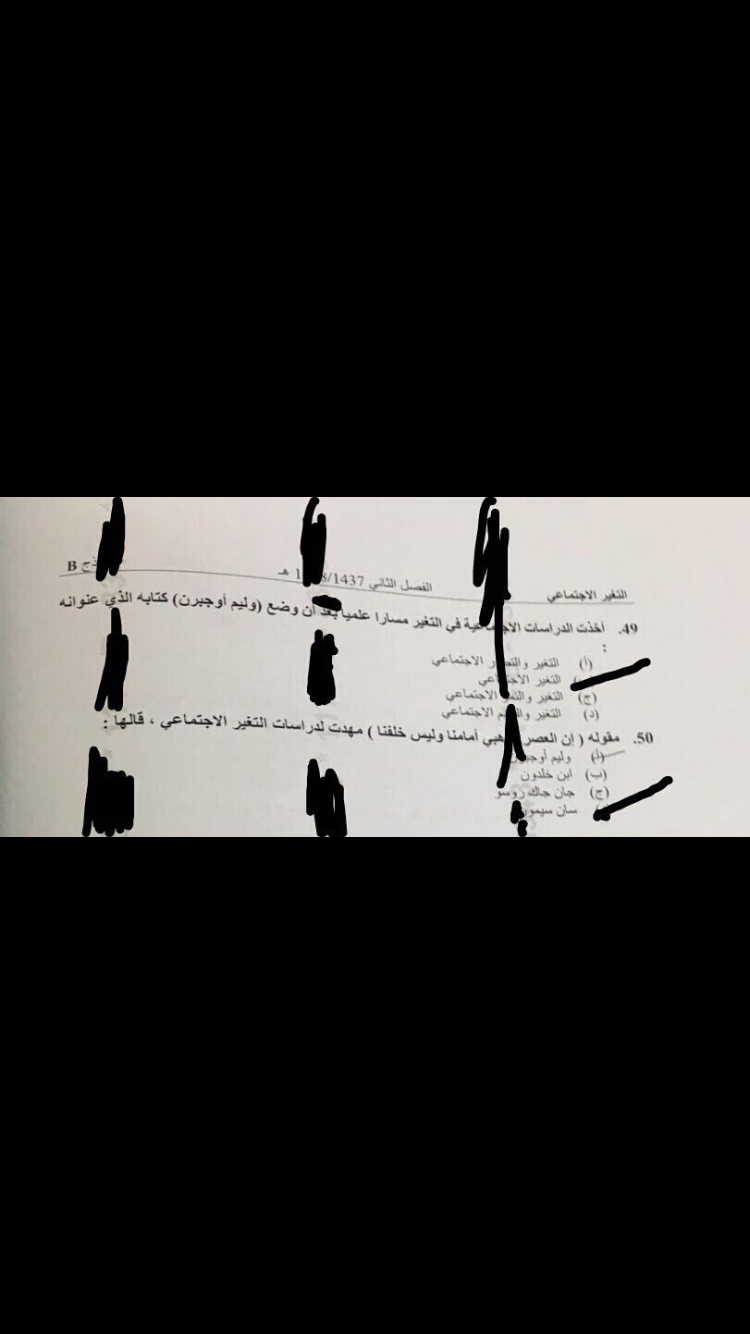 التغير الاجتماعي الفصل الثاني 1437/ هـ B
49. أخذت الدراسات في التغير مسارا علميا بعد أن وضع (وليم أوجبرن) كتابه الذي عنوانه
:
(أ) التغير الاجتماعي
التغير
(ج) التغير الاجتماعي
(د) التغير الاجتماعي
50. مقوله ( إن العصر أمامنا وليس خلفنا ) مهدت لدراسات التغير الاجتماعي ، قالها :
(أ) وليم
(ب) ابن خلدون
(ج) جان جاك روسو
سان